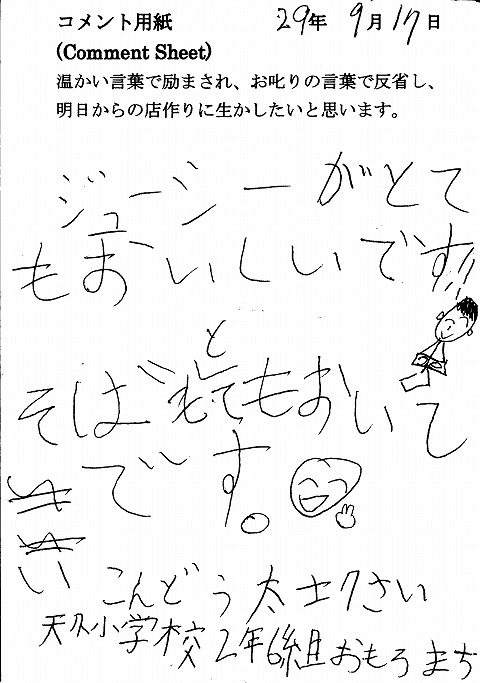 コメント用紙 29年 9月17日
(Comment Sheet)
温かい言葉で励まされ、お叱りの言葉で反省し、
明日からの店作りに生かしたいと思います。
ジューシーがとて
もおいしいです!!
そばとてもおいし
いです。
こんどう 太士 7さい
天久小学校 2年6組 おもろまち